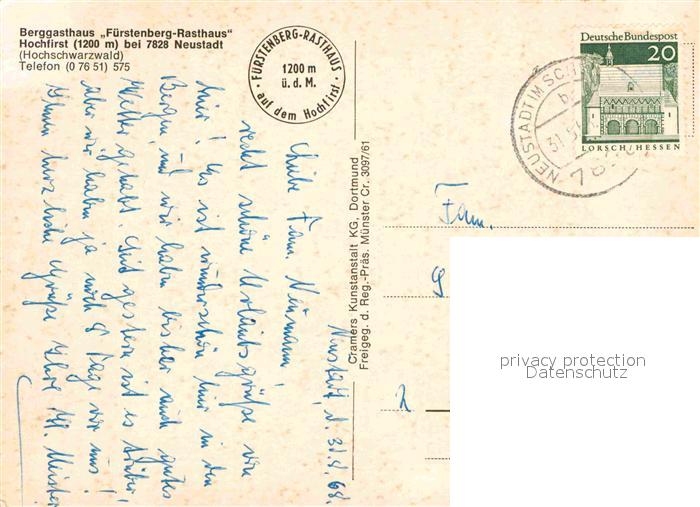 Berggasthaus „Fürstenberg-Rasthaus"
Hochfirst (1200 m) bei 7828 Neustadt
(Hochschwarzwald)
Telefon (0 76 51) 575
· FÜRSTENBERG-RASTHAUS ·
1200 m
ü. d. M.
auf dem Hochfirst
Deutsche Bundespost
20
LORSCH/HESSEN
NEUSTADT IM SCH
Cramers Kunstanstalt KG, Dortmund
Freigeg. d. Reg.-Präs. Münster Cr. 3097/61
Neustadt, d. 31.8.68.
Liebe Fam. Neumann!
recht schöne Urlaubsgrüße von
hier! Es ist wunderschön hier in den
Bergen, und wir haben bisher auch gutes
Wetter gehabt. Seit gestern ist es trüber,
aber wir haben ja noch 8 Tage vor uns!
Ihnen herzliche Grüße Ihre
Fam.
privacy protection
Datenschutz